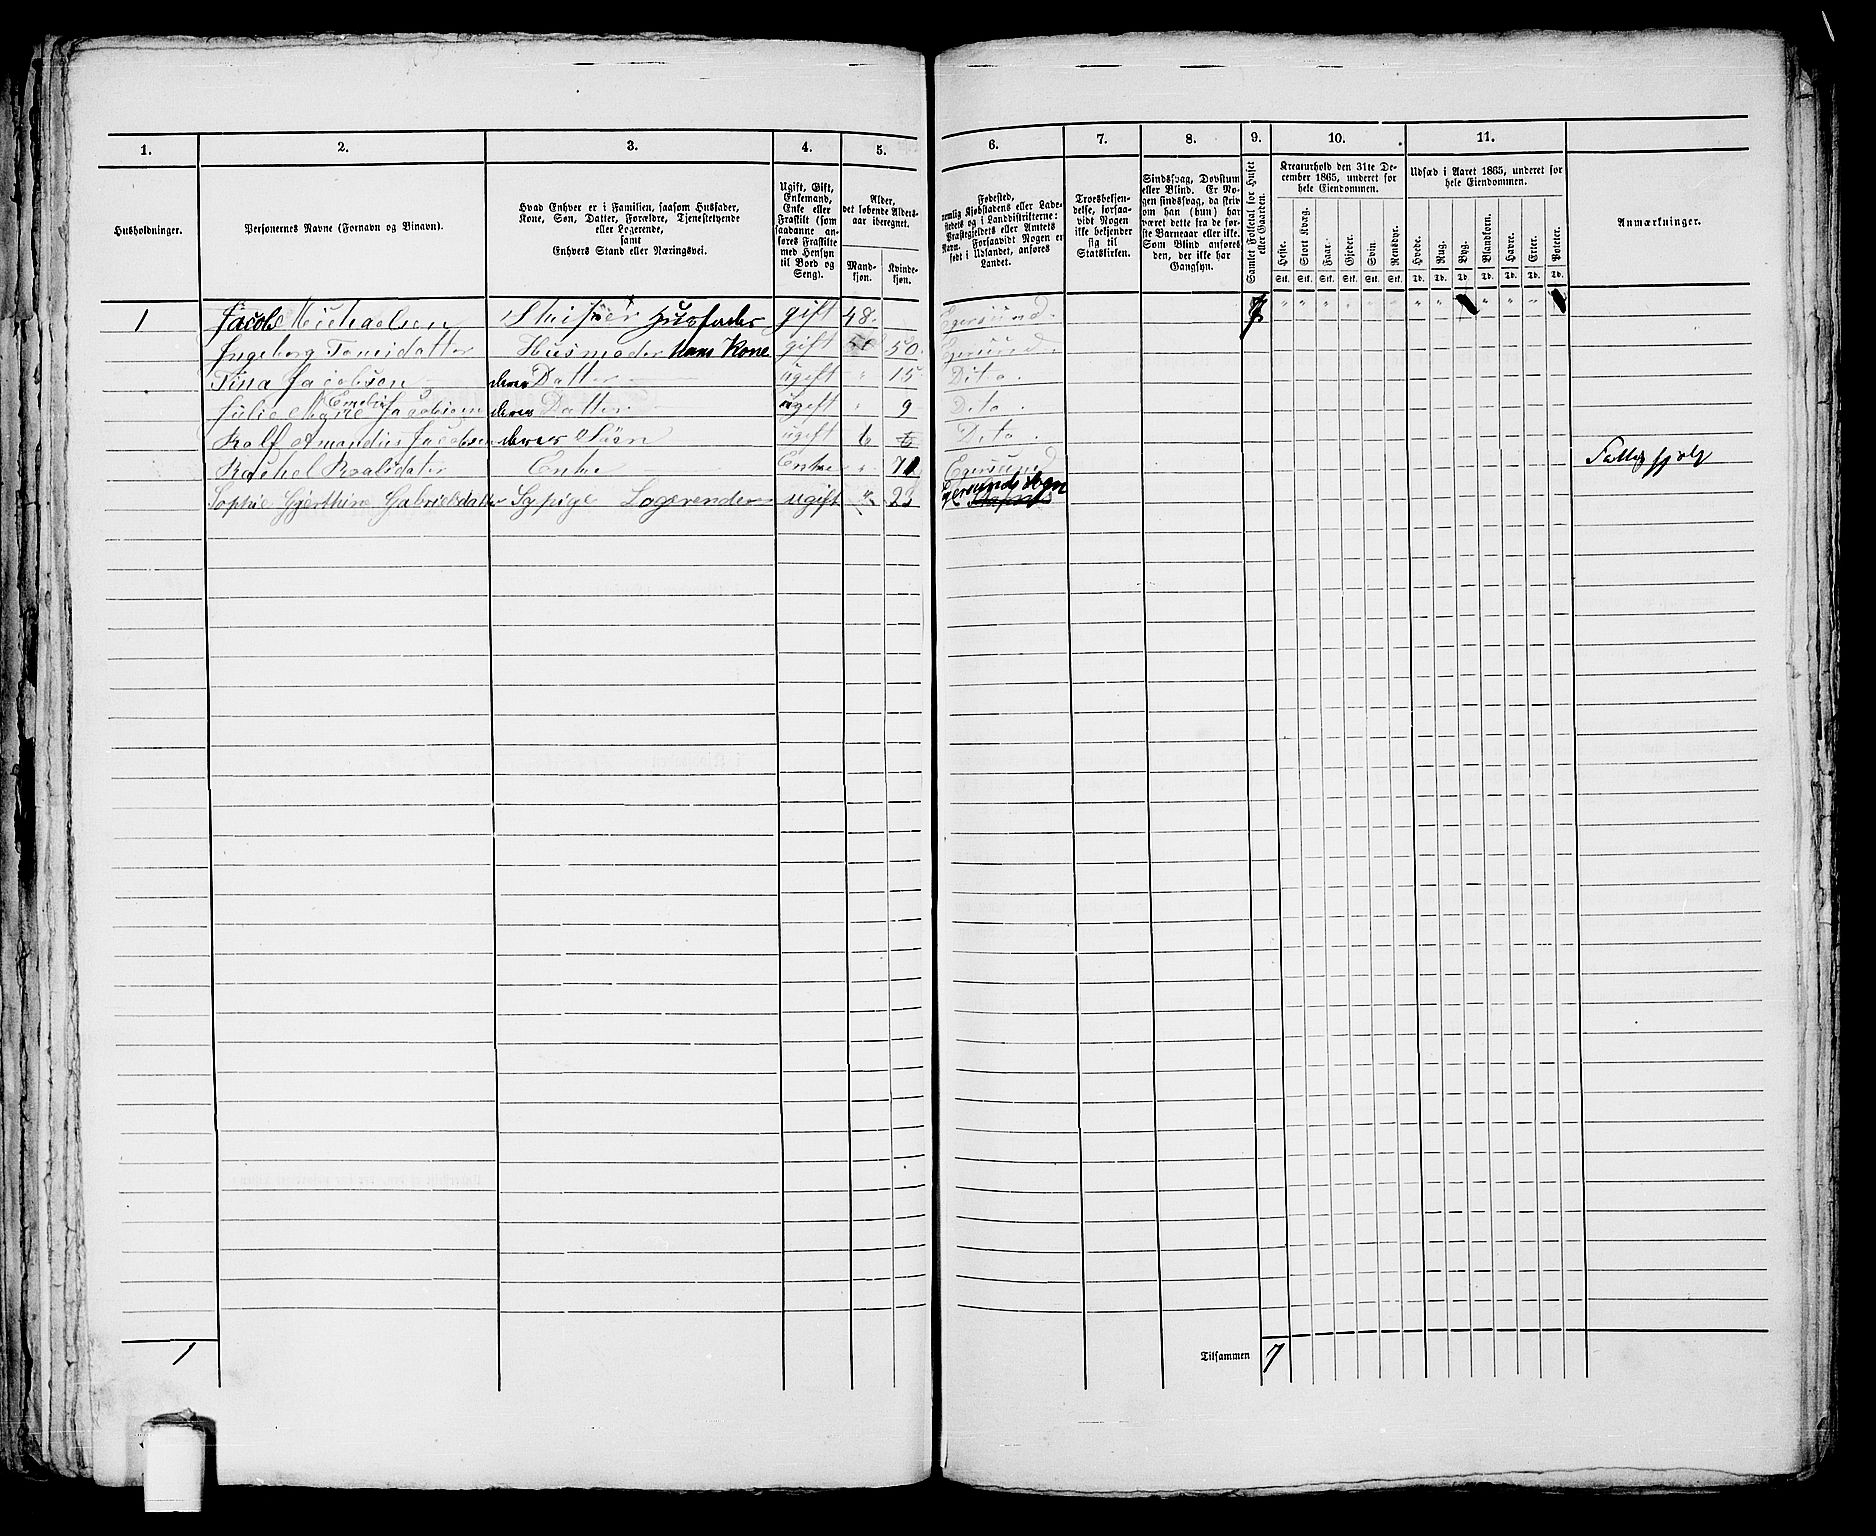 1. 2. 3. 4. 5. 6. 7. 8. 9. 10. 11.
Husholdninger.
Personernes Navne (Fornavn og Binavn).
Hvad Enhver er i Familien, saasom Husfader,
Kone, Søn, Datter, Forældre, Tjenestetyende
eller Logerende,
samt
Enhvers Stand eller Næringsvei.
Ugift, Gift,
Enkemand,
Enke eller
Fraskilt (som
saadanne an-
føres Fraskilte
med Hensyn
til Bord og
Seng).
Alder,
det løbende Alders-
aar iberegnet.
Mand-
kjøn.
Kvinde-
kjøn.
Fødested,
nemlig Kjøbstadens eller Lade-
stedets og i Landdistrikterne:
Præstegjeldets eller Amtets
Navn. Forsaavidt Nogen er
født i Udlandet, anføres
Landet.
Troesbekjen-
delse, forsaa-
vidt Nogen
ikke bekjender
sig til
Statskirken.
Sindssvag, Døvstum
eller Blind. Er No-
gen sindssvag, da skriv
om han (hun) har
været dette fra de før-
ste Barneaar eller ikke.
Som Blind anføres
den, der ikke har
Gangsyn.
Samlet Folketal for Huset
eller Gaarden.
Kreaturhold den 31te De-
cember 1865, underet for
hele Eiendommen.
Heste. Stort Kvæg. Faar. Gjeder. Svin. Rensdyr.
Stk. Stk. Stk. Stk. Stk. Stk.
Udsæd i Aaret 1865, underet for
hele Eiendommen.
Hvede. Rug. Byg. Blandkorn. Havre. Erter. Poteter.
Td. Td. Td. Td. Td. Td. Td.
Anmærkninger.
1 Jacob Michaelsen Husfader gift 48. Egersund. 7
Ingeborg Tonnisdatter Husmoder hans Kone gift 50 50. Egersund.
Tina Jacobsen deres Datter ugift " 15 Dito.
Emelie
Julie Jacobsen deres Datter ugift " 9 Dito.
Ralf Amandus Jacobsen deres Søn ugift 6 6 Dito.
Rachel Enke Enke " 71 Egersund
Sophie Gjerthine Gabrielsdatter Sypige Logerende ugift " 23 Egersunds Sogn
1 Tilsammen 7